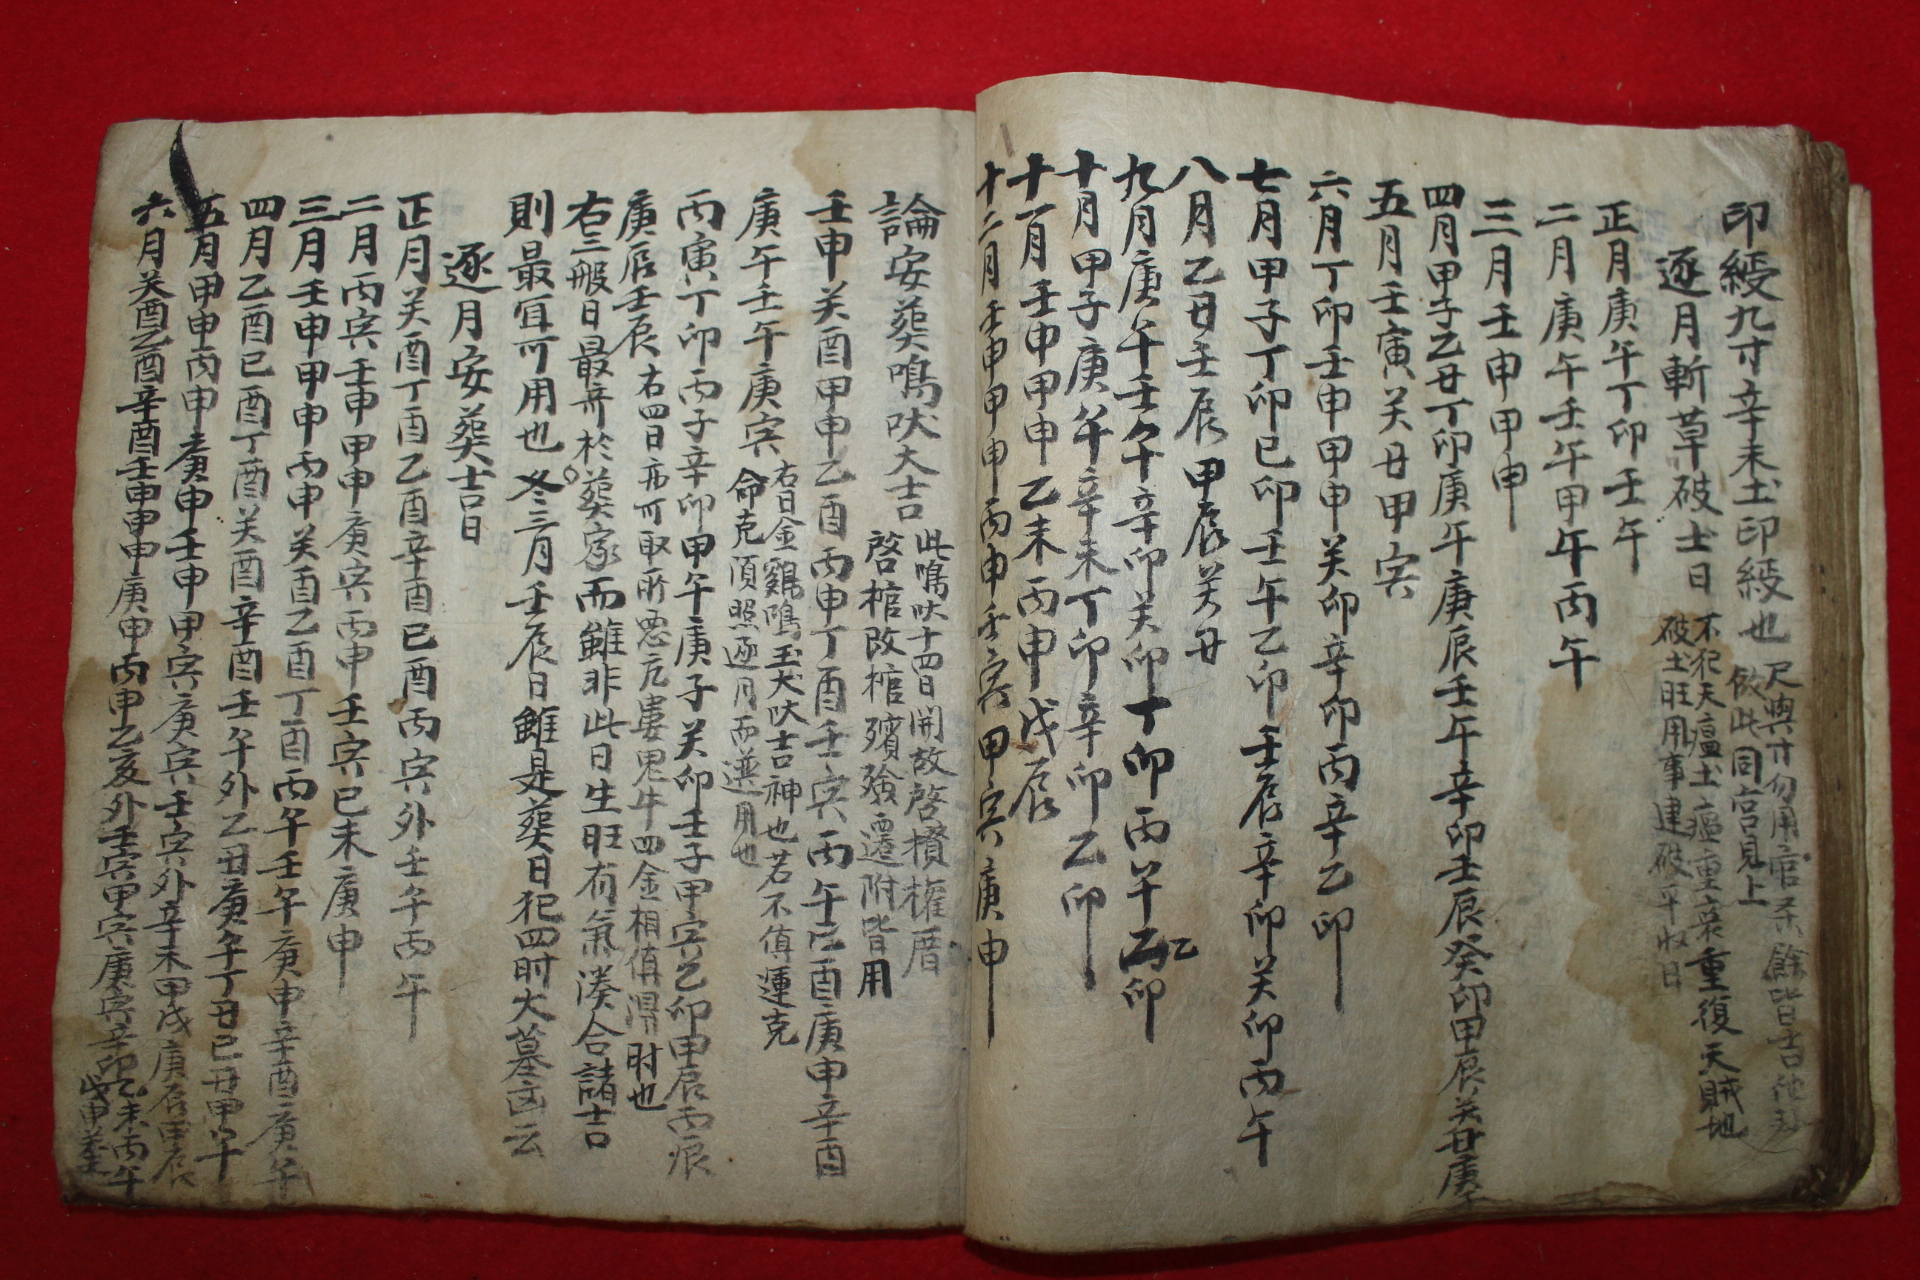 印綬九寸辛未土印綬也
尺與寸勿用 餘皆吉他
倣此同宮見上
逐月斬草破土日
不犯天瘟土瘟重喪重復天賊地
破土旺用事建破平收日
正月庚午丁卯壬午
二月庚午壬午甲午丙午
三月壬申甲申
四月甲子乙丑丁卯庚午庚辰壬午辛卯壬辰癸卯甲辰癸丑庚午
五月壬寅癸丑甲寅
六月丁卯壬申甲申癸卯辛卯丙辛乙卯
七月甲子丁卯己卯壬午乙卯壬辰辛卯癸卯丙午
八月乙丑壬辰甲辰癸丑
九月庚午壬午辛卯癸卯丁卯丙午乙卯
十月甲子庚午辛未丁卯辛卯乙卯
十一月壬申甲申乙未丙申戊辰
十二月壬申甲申丙申壬寅甲寅庚申
論安葬鳴吠大吉
此鳴吠十四日開故啓攅權厝
啓棺改棺殯殮遷附皆用
壬申癸酉甲申乙酉丙申丁酉壬寅丙午己酉庚申辛酉
庚午壬午庚寅
右日金鷄鳴玉犬吠吉神也若不値運克
命克頂照逐月而選用也
丙寅丁卯丙子辛卯甲午庚子癸卯壬子甲寅乙卯甲辰丙辰
庚辰壬辰右四日亦可取所忌亢婁鬼牛四金相値得時也
右三般日最齊於葬家而雖非此日生旺有氣湊合諸吉
則最宜可用也冬三月壬辰日雖是葬日犯四時大墓凶云
逐月安葬吉日
正月癸酉丁酉乙酉辛酉己酉丙寅外壬午丙午
二月丙寅壬申甲申庚寅丙申壬寅己未庚申
三月壬申甲申丙申癸酉乙酉丁酉丙午壬午庚申辛酉庚午
四月乙酉己酉丁酉癸酉辛酉壬午外乙丑庚午丁丑己丑甲午
五月甲申丙申庚申壬申甲寅庚寅壬寅外辛未甲戌庚辰甲辰
六月癸酉乙酉辛酉壬申甲申庚申丙申乙亥外壬寅甲寅庚寅辛卯乙未丙午